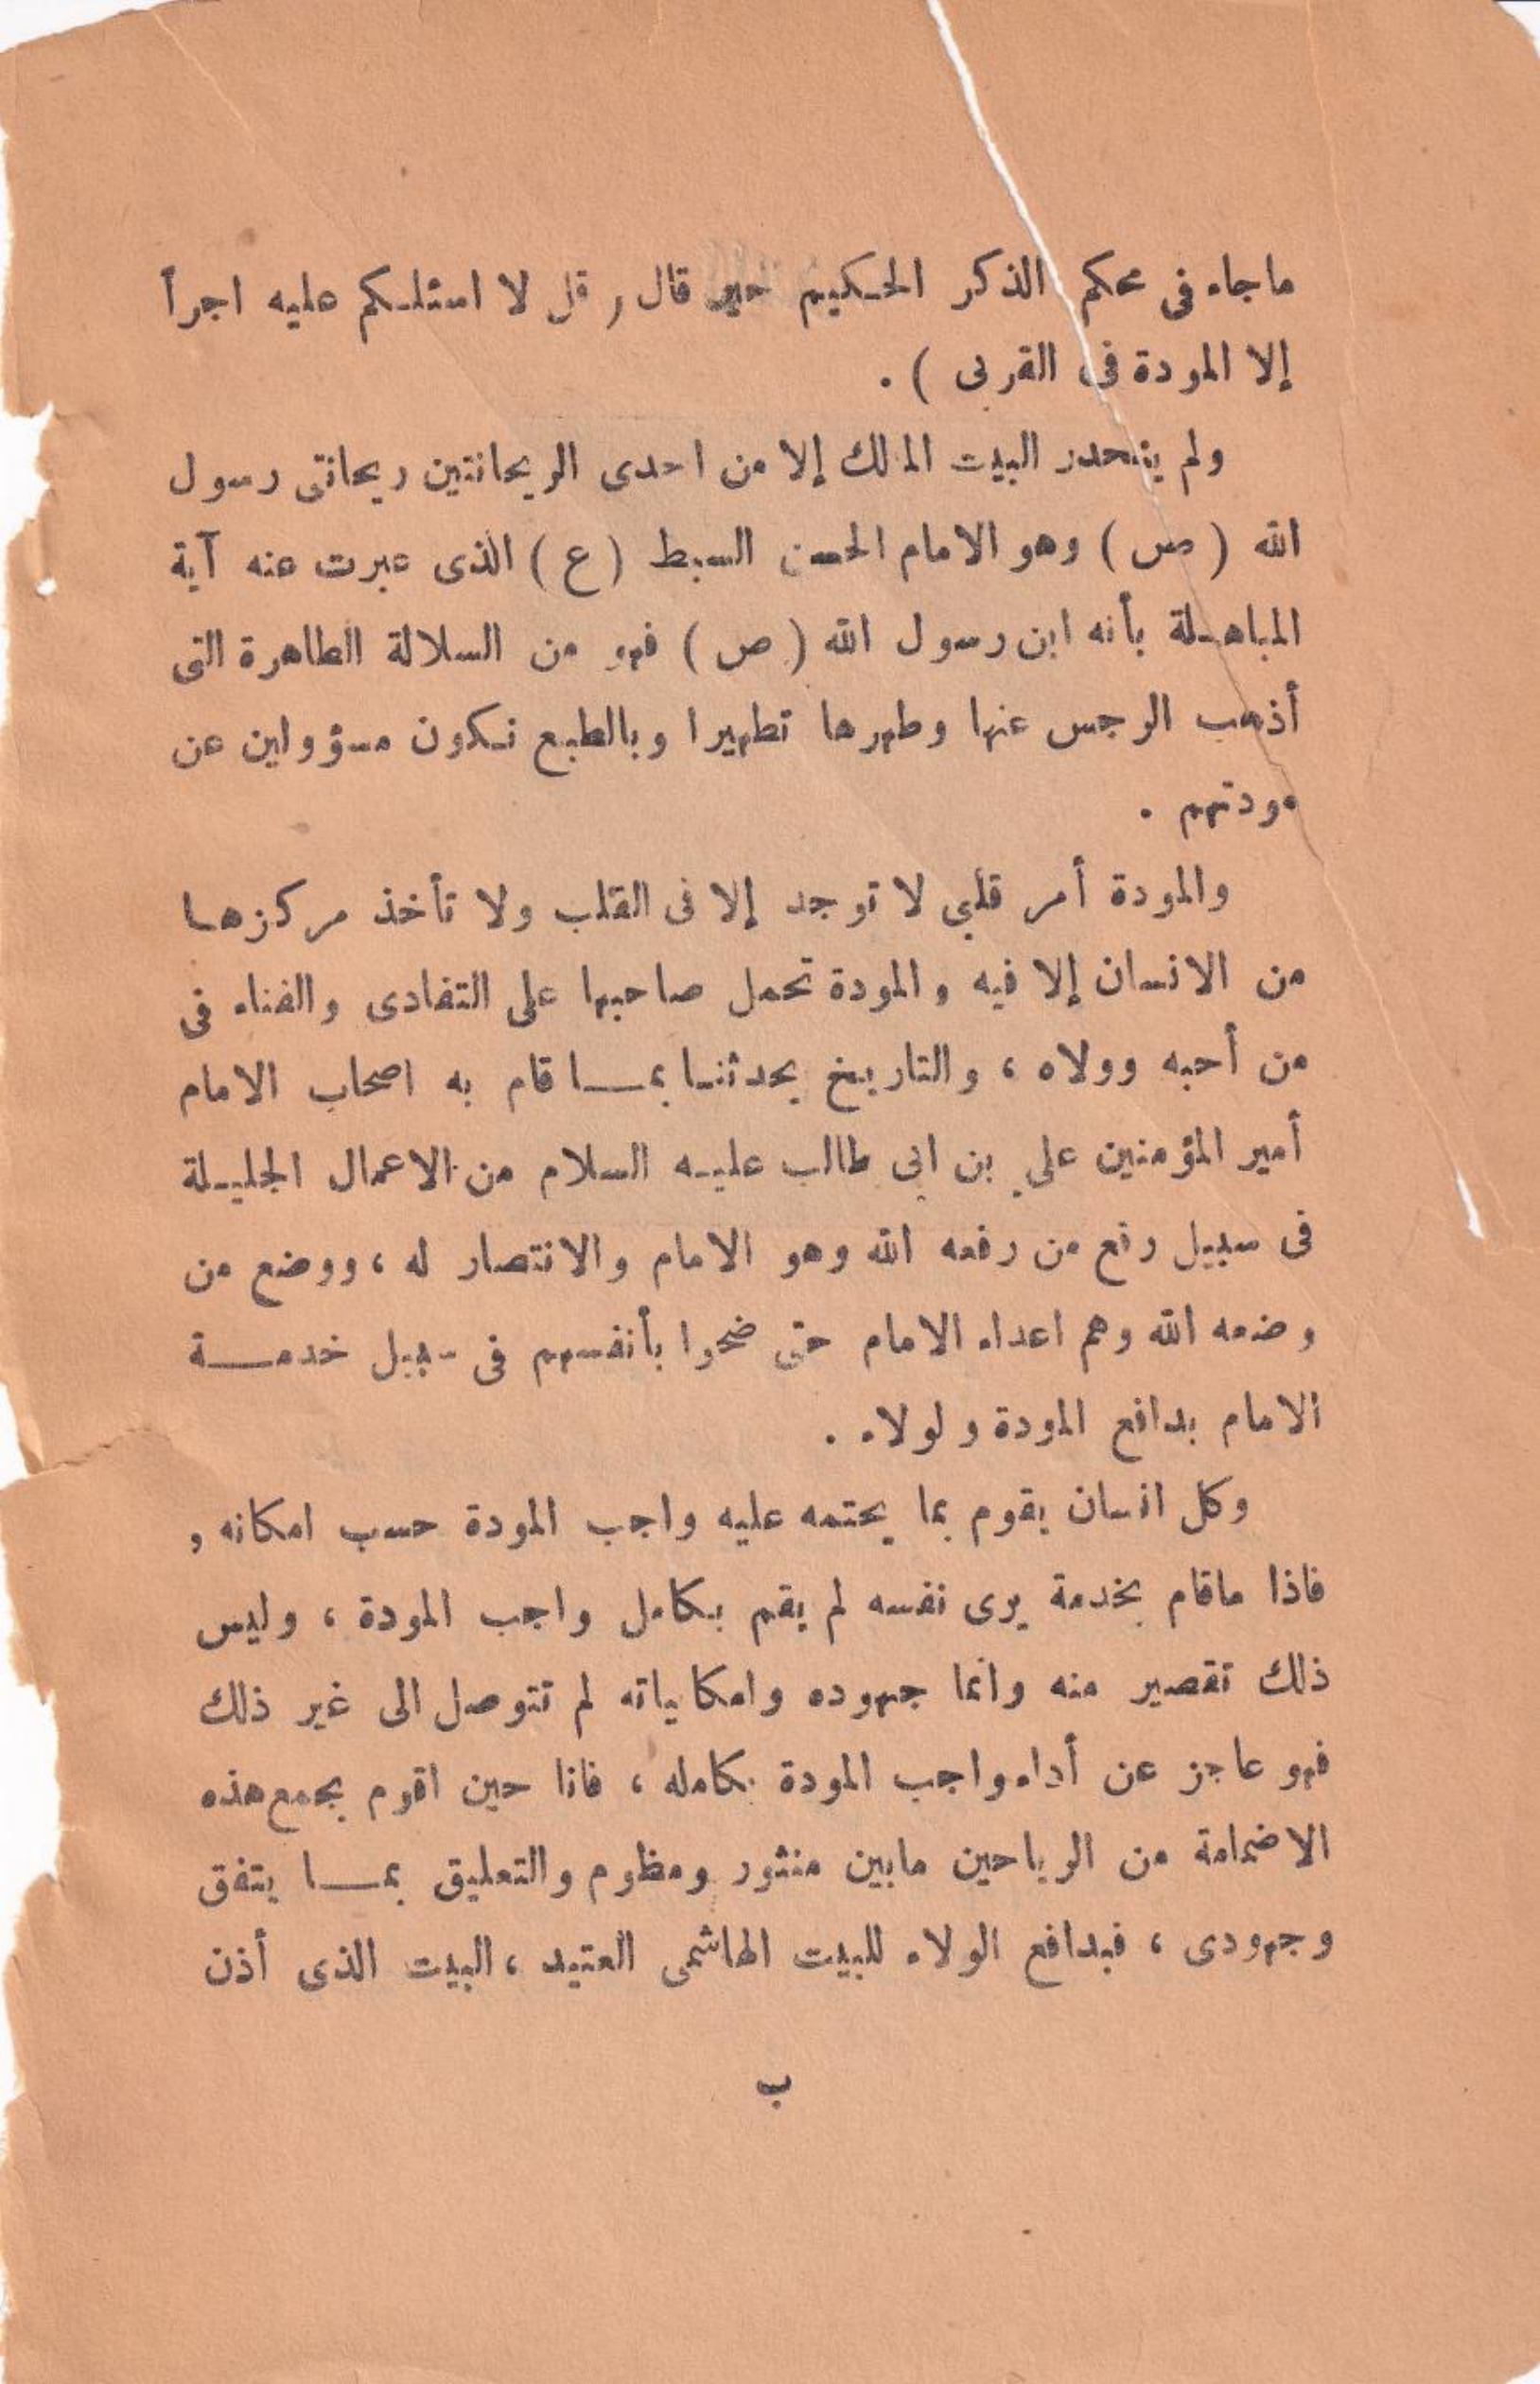 ماجاء فى محكم الذكر الحكيم حين قال ( قل لا اسئلكم عليه اجراً
إلا المودة فى القربى ) .
ولم ينحدر البيت المالك إلا من احدى الريحانتين ريحانتى رسول
الله ( ص ) وهو الامام الحسن السبط ( ع ) الذى عبرت عنه آية
المباهلة بأنه ابن رسول الله ( ص ) فهو من السلالة الطاهرة التى
أذهب الرجس عنها وطهرها تطهيرا وبالطبع نكون مسؤولين عن
مودتهم .
والمودة أمر قلبي لا توجد إلا فى القلب ولا تأخذ مركزها
من الانسان إلا فيه والمودة تحمل صاحبها على التفادى والفناء فى
من أحبه وولاه ، والتاريخ يحدثنا بما قام به اصحاب الامام
أمير المؤمنين علي بن ابى طالب عليه السلام من الاعمال الجليلة
فى سبيل رفع من رفعه الله وهو الامام والانتصار له ، ووضع من
وضعه الله وهم اعداء الامام حتى ضحوا بأنفسهم فى سبيل خدمة
الامام بدافع المودة ولولاء .
وكل انسان يقوم بما يحتمه عليه واجب المودة حسب امكانه ,
فاذا ماقام بخدمة يرى نفسه لم يقم بكامل واجب المودة ، وليس
ذلك تقصير منه وانما جهوده وامكاياته لم تتوصل الى غير ذلك
فهو عاجز عن أداء واجب المودة بكامله ، فانا حين اقوم بجمع هذه
الاضمامة من الرياحين مابين منثور ومظوم والتعليق بما يتفق
وجهودى ، فبدافع الولاء للبيت الهاشمى العتيد ، البيت الذى أذن
ب